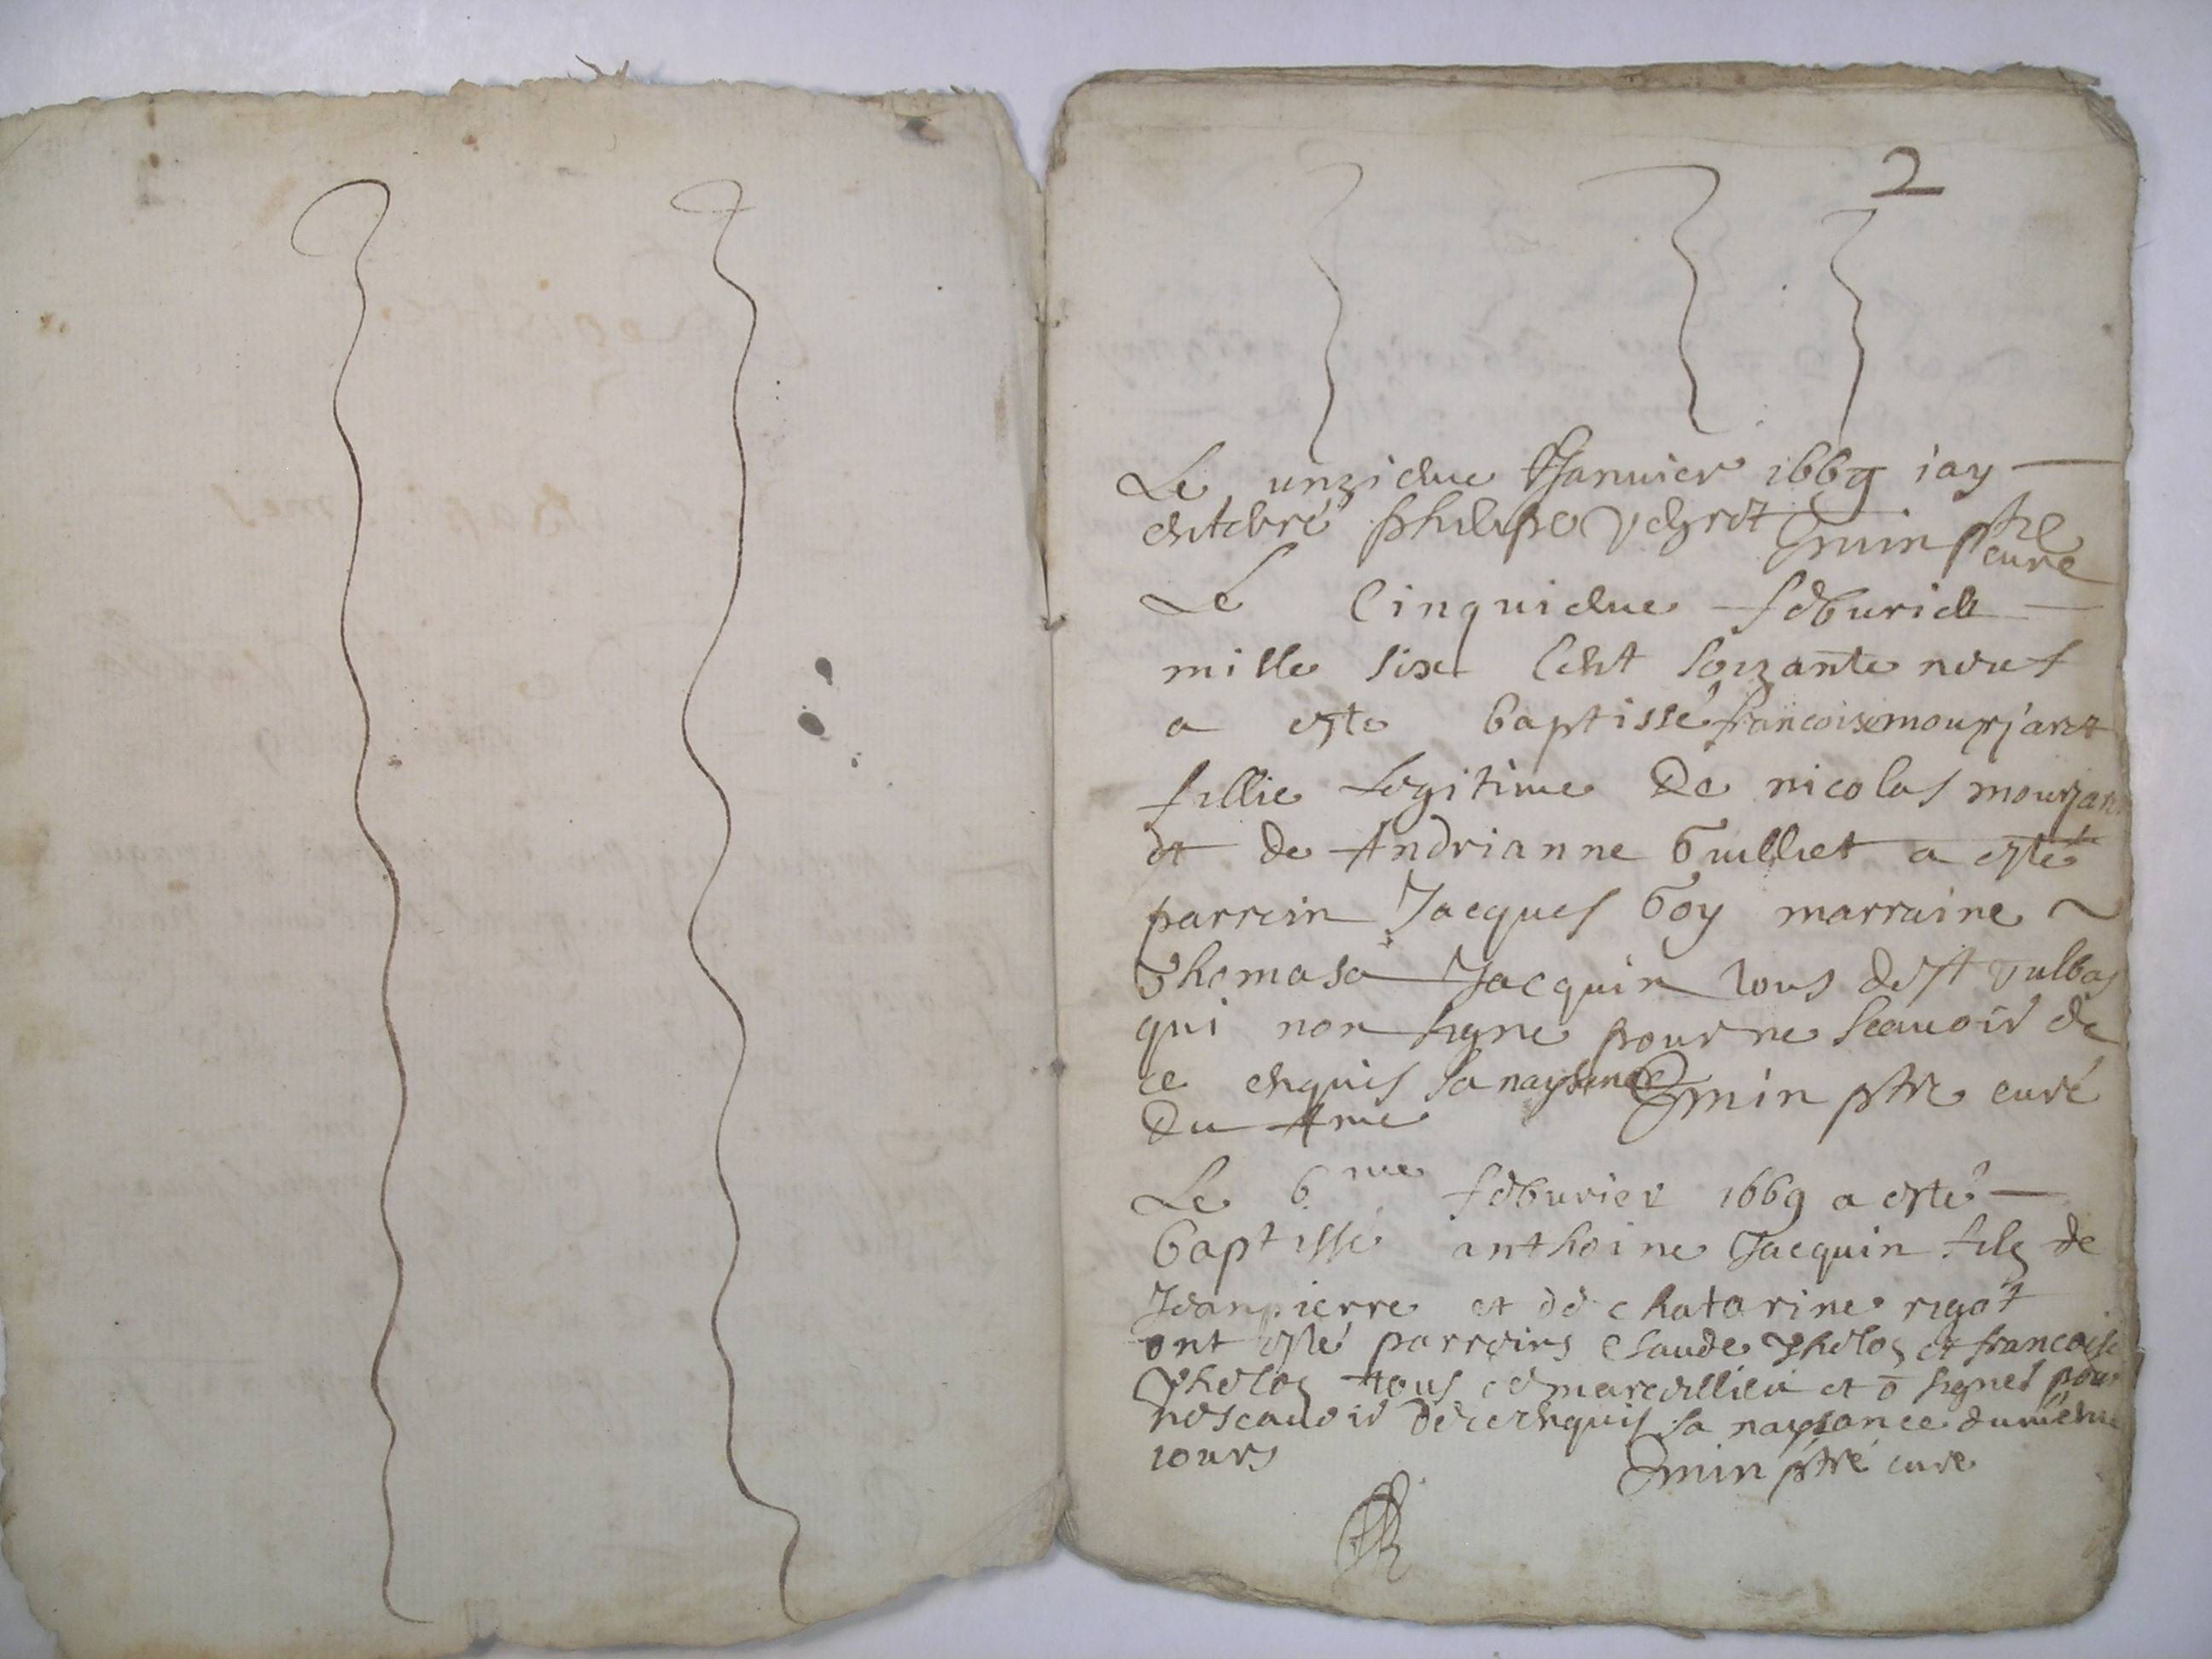 2
Le unzieme Januier 1669 iay
enterré philipe veyret Jmin ptre
curé
Le Cinquieme feburier
mille six Cent soizante neuf
a este baptissé francoise mourjaret
fillie Legitime De nicolas
et de Andrianne Guilliet a esté
parrein Jacques Goy marraine
Thomasa Jacquin tous de st vulbas
qui non signe pour ne scauoir de
ce enquis sa naysance Jmin ptre curé
Du 4me
Le 6me feburier 1669 a esté
baptissé anthoine Jacquin filz de
Jeanpierre et de chatarine rigot
ont esté parreins Claude et francoise
tous de marcillieu et ō signes pour
ne scauoir de ce enquis sa naysance du meme
iours
Jmin ptre curé